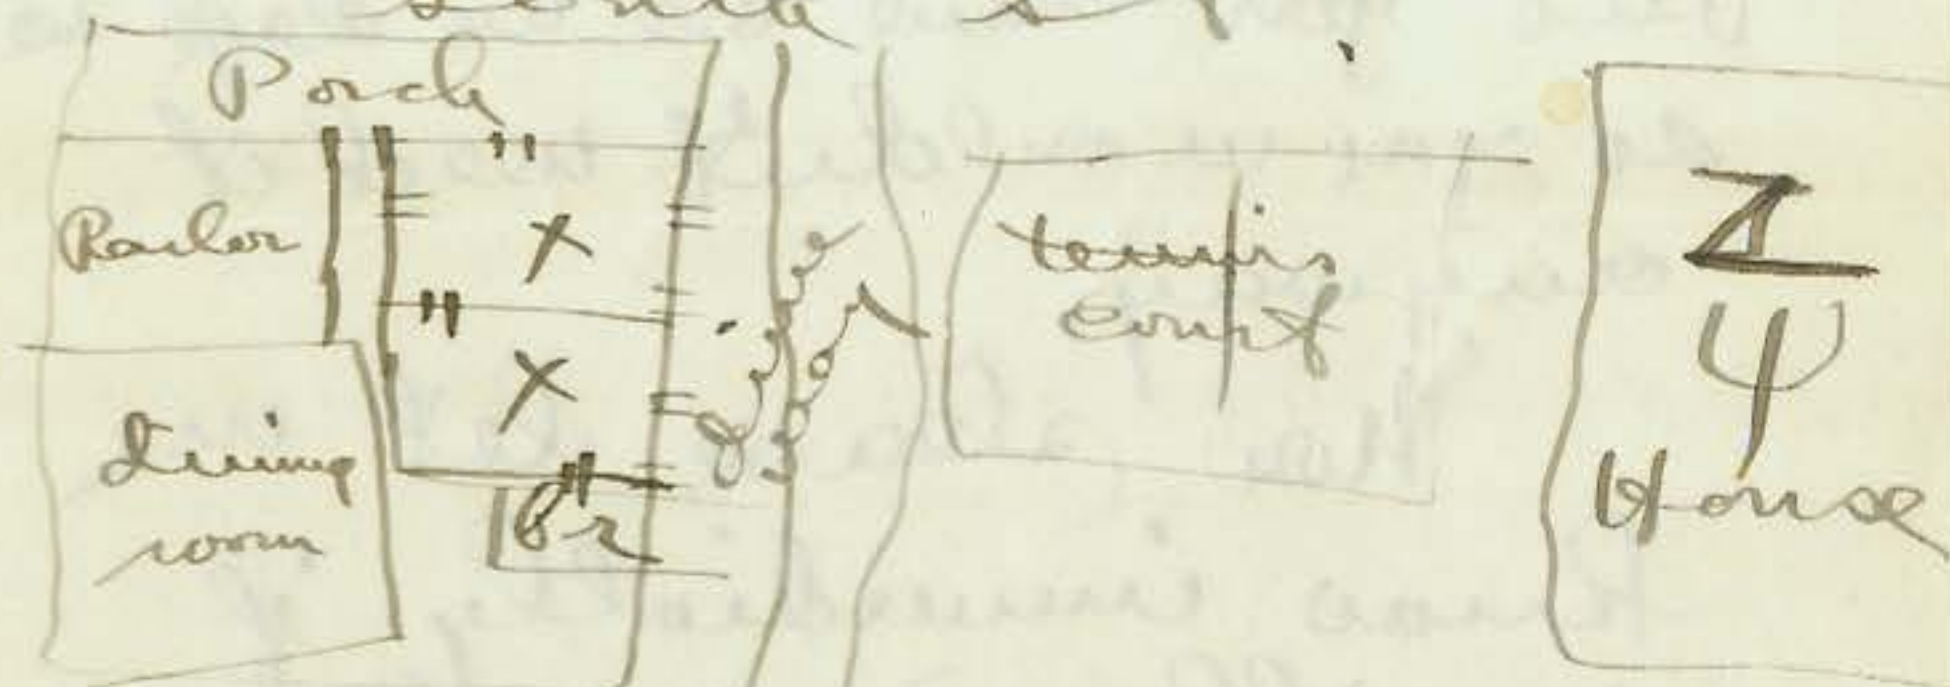 State St.
Porch
Parlor
X
X
dining
room
Br
drive
way
tennis
court
Z
Ψ
House